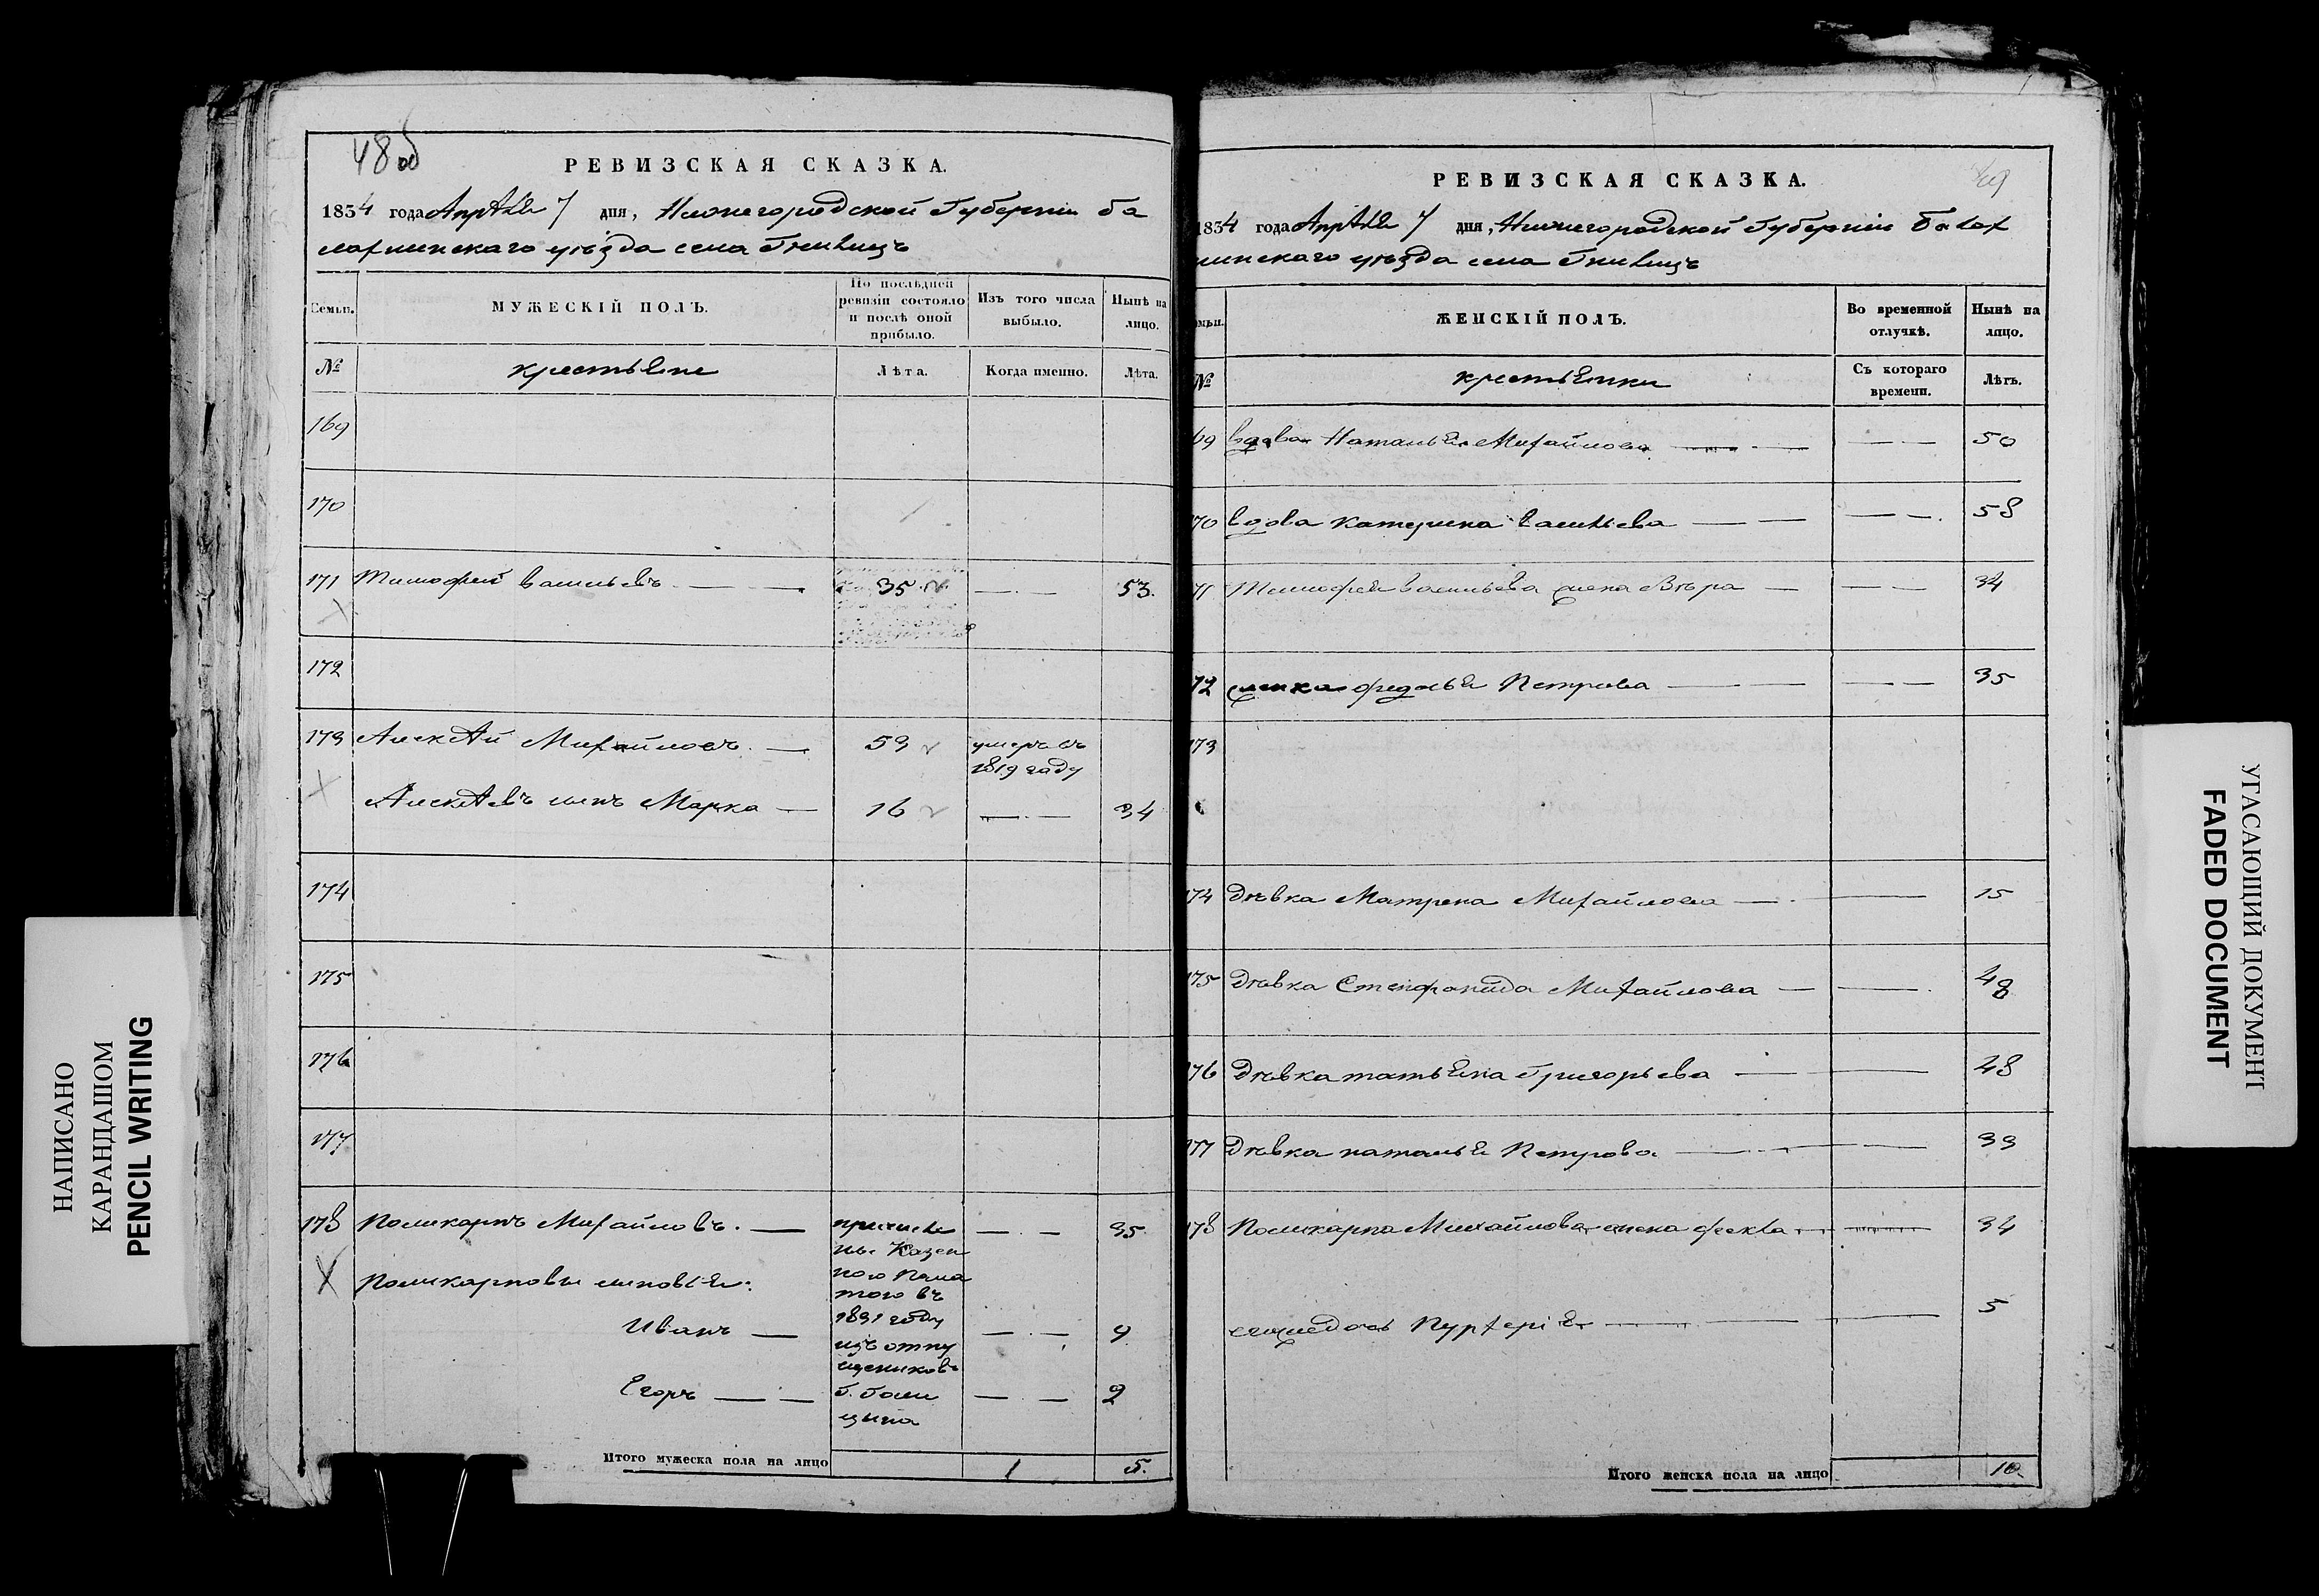 48 об
РЕВИЗСКАЯ СКАЗКА.
1834 года Апрѣля 7 дня, Нижегородской Губернiи ба
лахнинскаго уѣзда села Гнилицъ
Семьи. МУЖЕСКIЙ ПОЛЪ. По послѣдней ревизiи состояло и послѣ оной прибыло. Изъ того числа выбыло. Нынѣ на лицо.
№ крестьяне Лѣта. Когда именно. Лѣта.
169
170
171 Тимофей васильевъ 35 53.
172
173 Алексѣй Михайловъ. 53 умеръ въ 1819 году
Алексѣевъ сынъ Марка 16 34
174
175
176
177
178 Поликарпъ Михайловъ. 35
Поликарповы сыновья:
Иванъ 9
Егоръ 2
причисле
ны Казен
ною Пала
тою въ
1831 году
изъ отпу
щениковъ
г. баш
Итого мужеска пола на лицо 1 5.
РЕВИЗСКАЯ СКАЗКА. 49
1834 года Апрѣля 7 дня, Нижегородской Губернiи балах
нинскаго уѣзда села Гнилицъ
ЖЕНСКIЙ ПОЛЪ. Во временной отлучкѣ. Нынѣ на лицо.
№ крестьянки Съ котораго времени. Лѣтъ.
69 вдова Наталья Михайлова 50
70 вдова катерина васильева 58
71 Тимофея васильева жена Вѣра 34
72 женка федосья Петрова 35
173
174 Дѣвка Матрена Михайлова 15
175 Дѣвка Стефанида Михайлова 48
176 Дѣвка татьяна Григорьева 48
177 Дѣвка наталья Петрова 33
178 Поликарпа Михайлова жена фекла 34
5
Итого женска пола на лицо 10.
НАПИСАНО
КАРАНДАШОМ
PENCIL WRITING
УГАСАЮЩИЙ ДОКУМЕНТ
FADED DOCUMENT